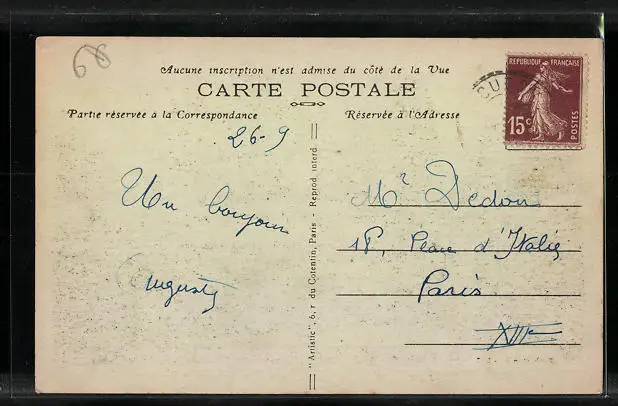 68
Aucune inscription n'est admise du côté de la Vue
CARTE POSTALE
Partie réservée à la Correspondance
Réservée à l'Adresse
RÉPUBLIQUE FRANÇAISE
15c
POSTES
26-9
Un bonjour
Auguste
"Artistic", 6, r du Cotentin, Paris - Reprod interd
Mr Dedon
18, Place d'Italie
Paris
XIIIe